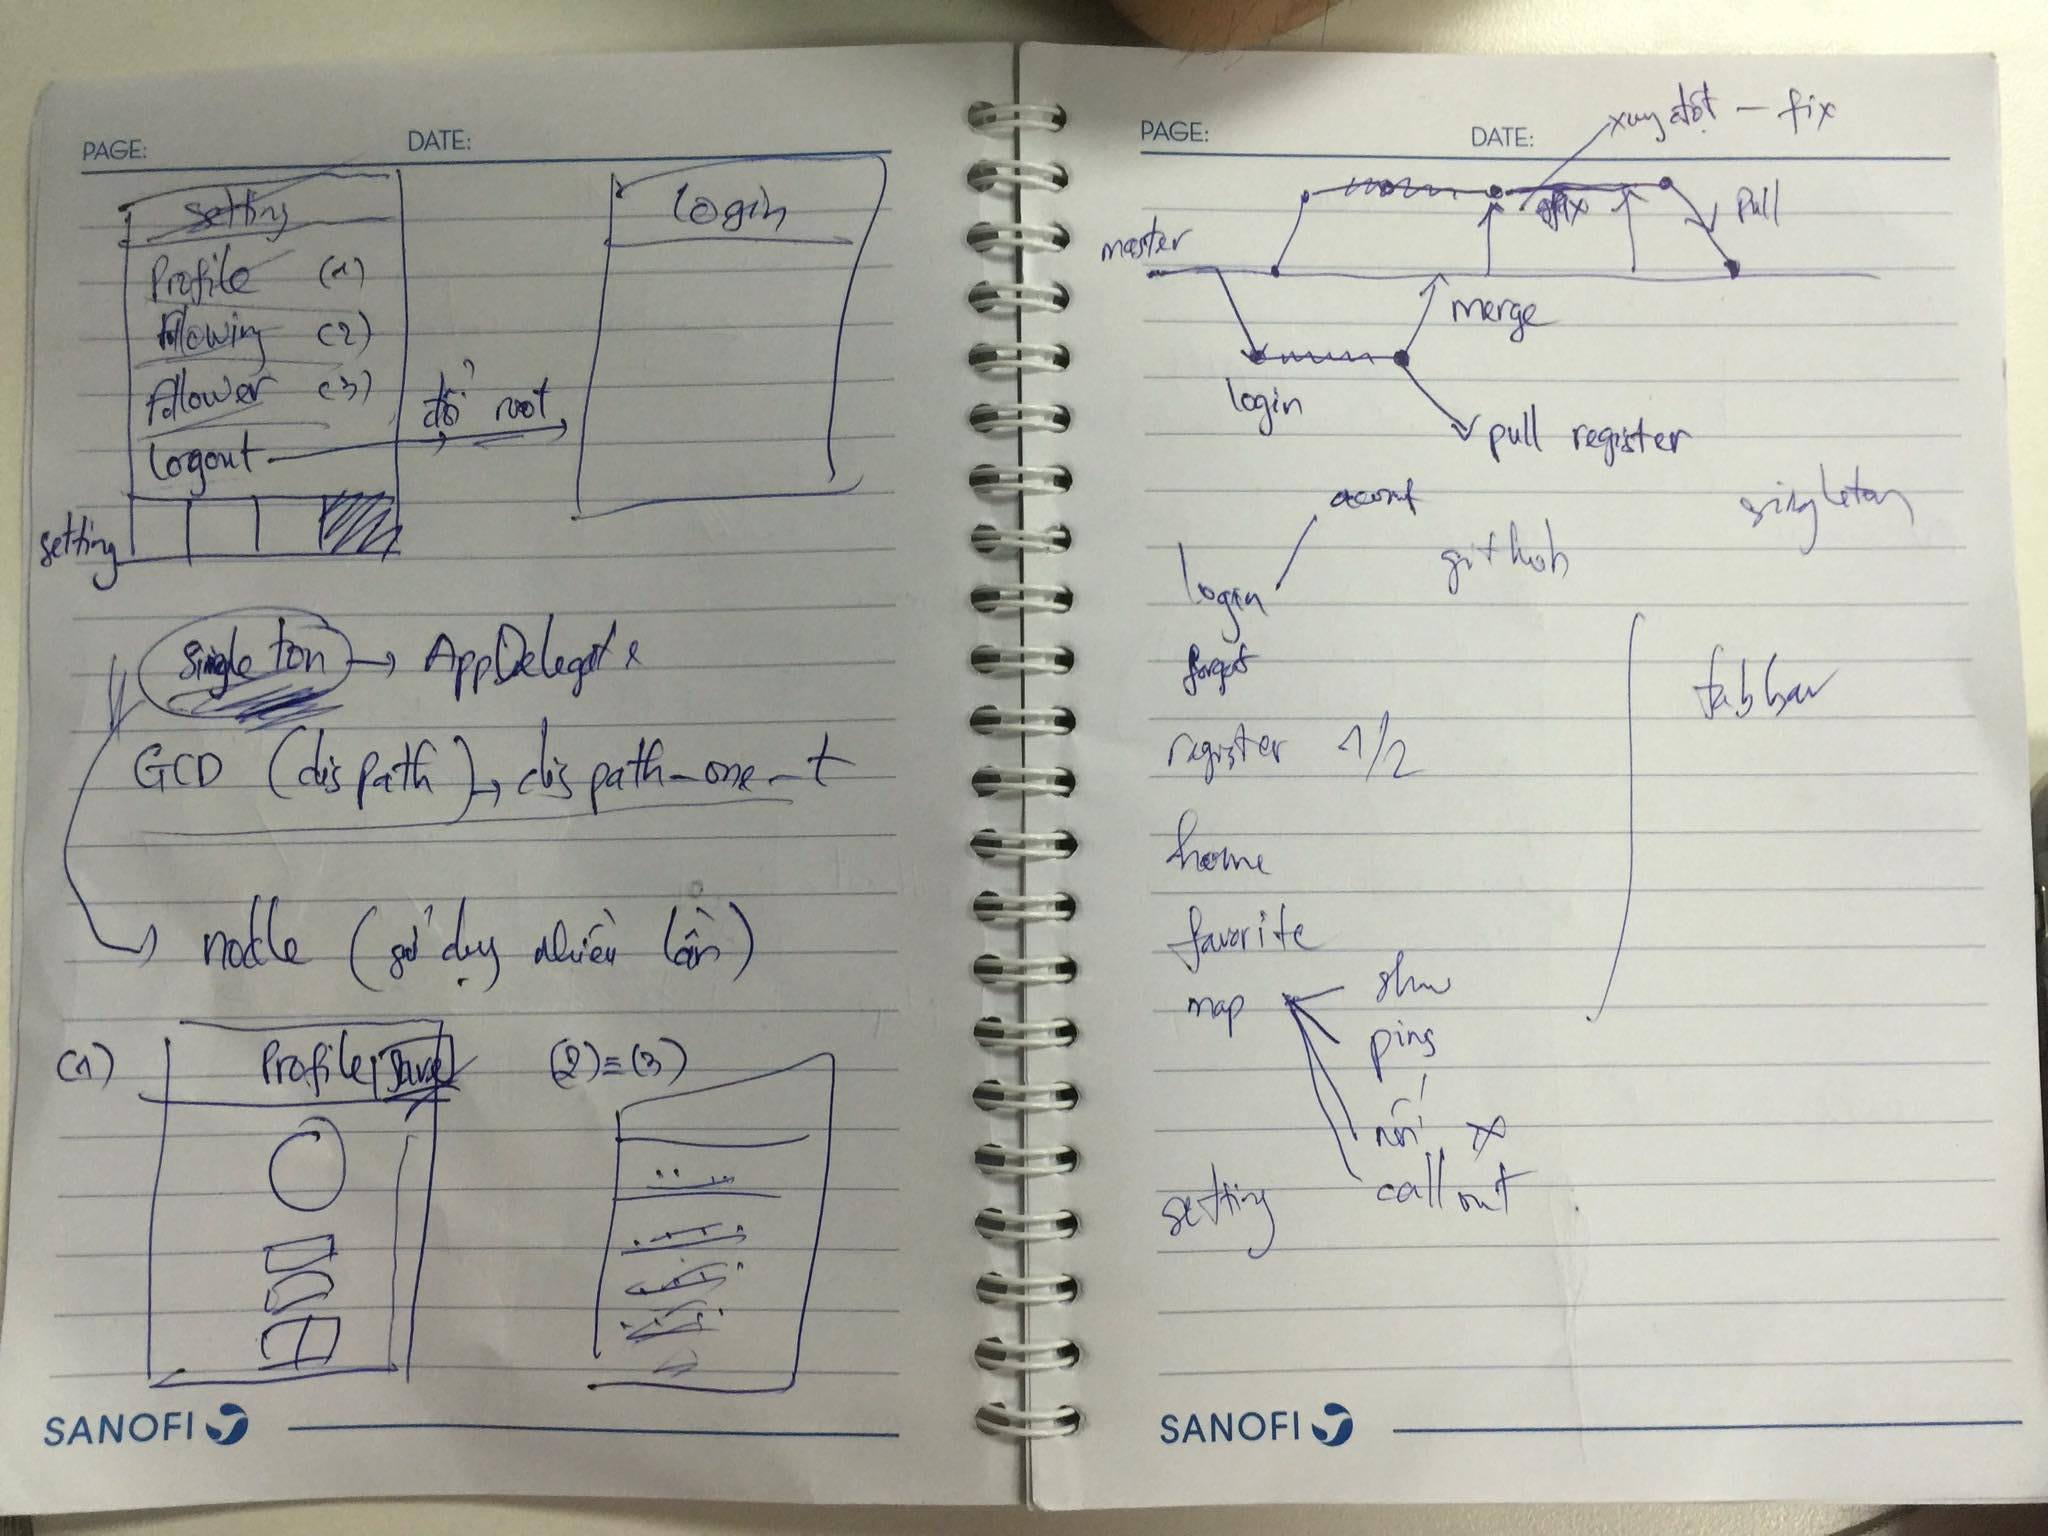 PAGE:
DATE:
setting
Profile (1)
following (2)
follower (3)
logout
đổi root
login
setting
singleton → AppDelegate
GCD (dispath) → dispath_one_t
(sử dụng nhiều lần)
(1)
Profile
save
(2) ≡ (3)
SANOFI
PAGE:
DATE:
xung đột - fix
master
fix
pull
merge
login
pull register
singleton
github
login
forgot
register 1/2
tabbar
home
favorite
map
show
pins
nối
callout
setting
SANOFI